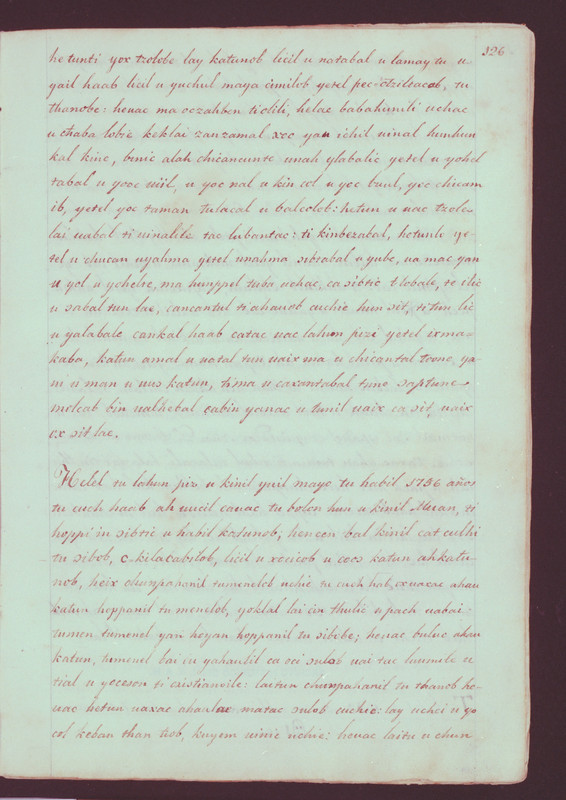 326
he tunti yox tzolobe lay katunob licil u natabal u lamay tu u
yail haab licil u yuchul maya cimilob yetel pec otzilacob, tu
thanobe: heuac ma oczahben ti olili, helac babahunili uchac
u chaba lobie keklai zanzamal xec yan ichil uinal hunhun
kal kine, binic alah chicancunte unah ylabalic yetel u yohel
tabal u yooc uiil, u yoc nal u kin col u yoc buul, yoc chicam
ib, yetel yoc taman tulacal u balcolob: hetun u uac tzole
lai uabal ti uinalile tac lubantac: ti kinbezabal, hetunlu ye-
tel u chucan uyahma yetel unahma sibtabal u yube, ua mac yan
u yol u ychelte, ma hunppel tuba uchac, ca sibtic tlobale, te ilic
u sabal tun lae, cancantul ti ahauob cuchie hun sit, ti tun lic
u yalabale cankal haab catac uac lahun pizi yetel ixma-
kaba, katun amal u natal tun uaix ma u chicantal toone, ya-
ni u man u nus katun, tima u caxantabal tune saptune
molcab bin ualkebal cabin yanac u tunil uaix ca sit, uaix
ox sit lae.
Helel tu lahun pis u kinil ynil mayo tu habil 1756 años
tu cuch haab ah uucil cauac tu bolon hun u kinil Muan, ti
hoppi in sibtic u habil katunob, hencen bal kinil cat culhi
tu sibob, c. kilacabilob, licil u xocicob u cocs katun ahkatu-
nob, heix chunpahanil tumenelob uchie tu cuch hab, oxuaxac ahau
katun hoppanil tu menelob, yoklal lai cin thulic u pach uabai
tumen tumenel yan heyan hoppanil tu sibobe; heuac buluc ahau
katun, tumenel lai cu yahaulil ca oci sulob uai tac luumile u
tial u yocsson ti cristianoile: laitun chunpahanil tu thanob he-
uac hetun uaxac ahaulae matac sulob cuchie: lay uchci u yo
col keban than tiob, kuyem uinic uchie: heuac laitu u chun